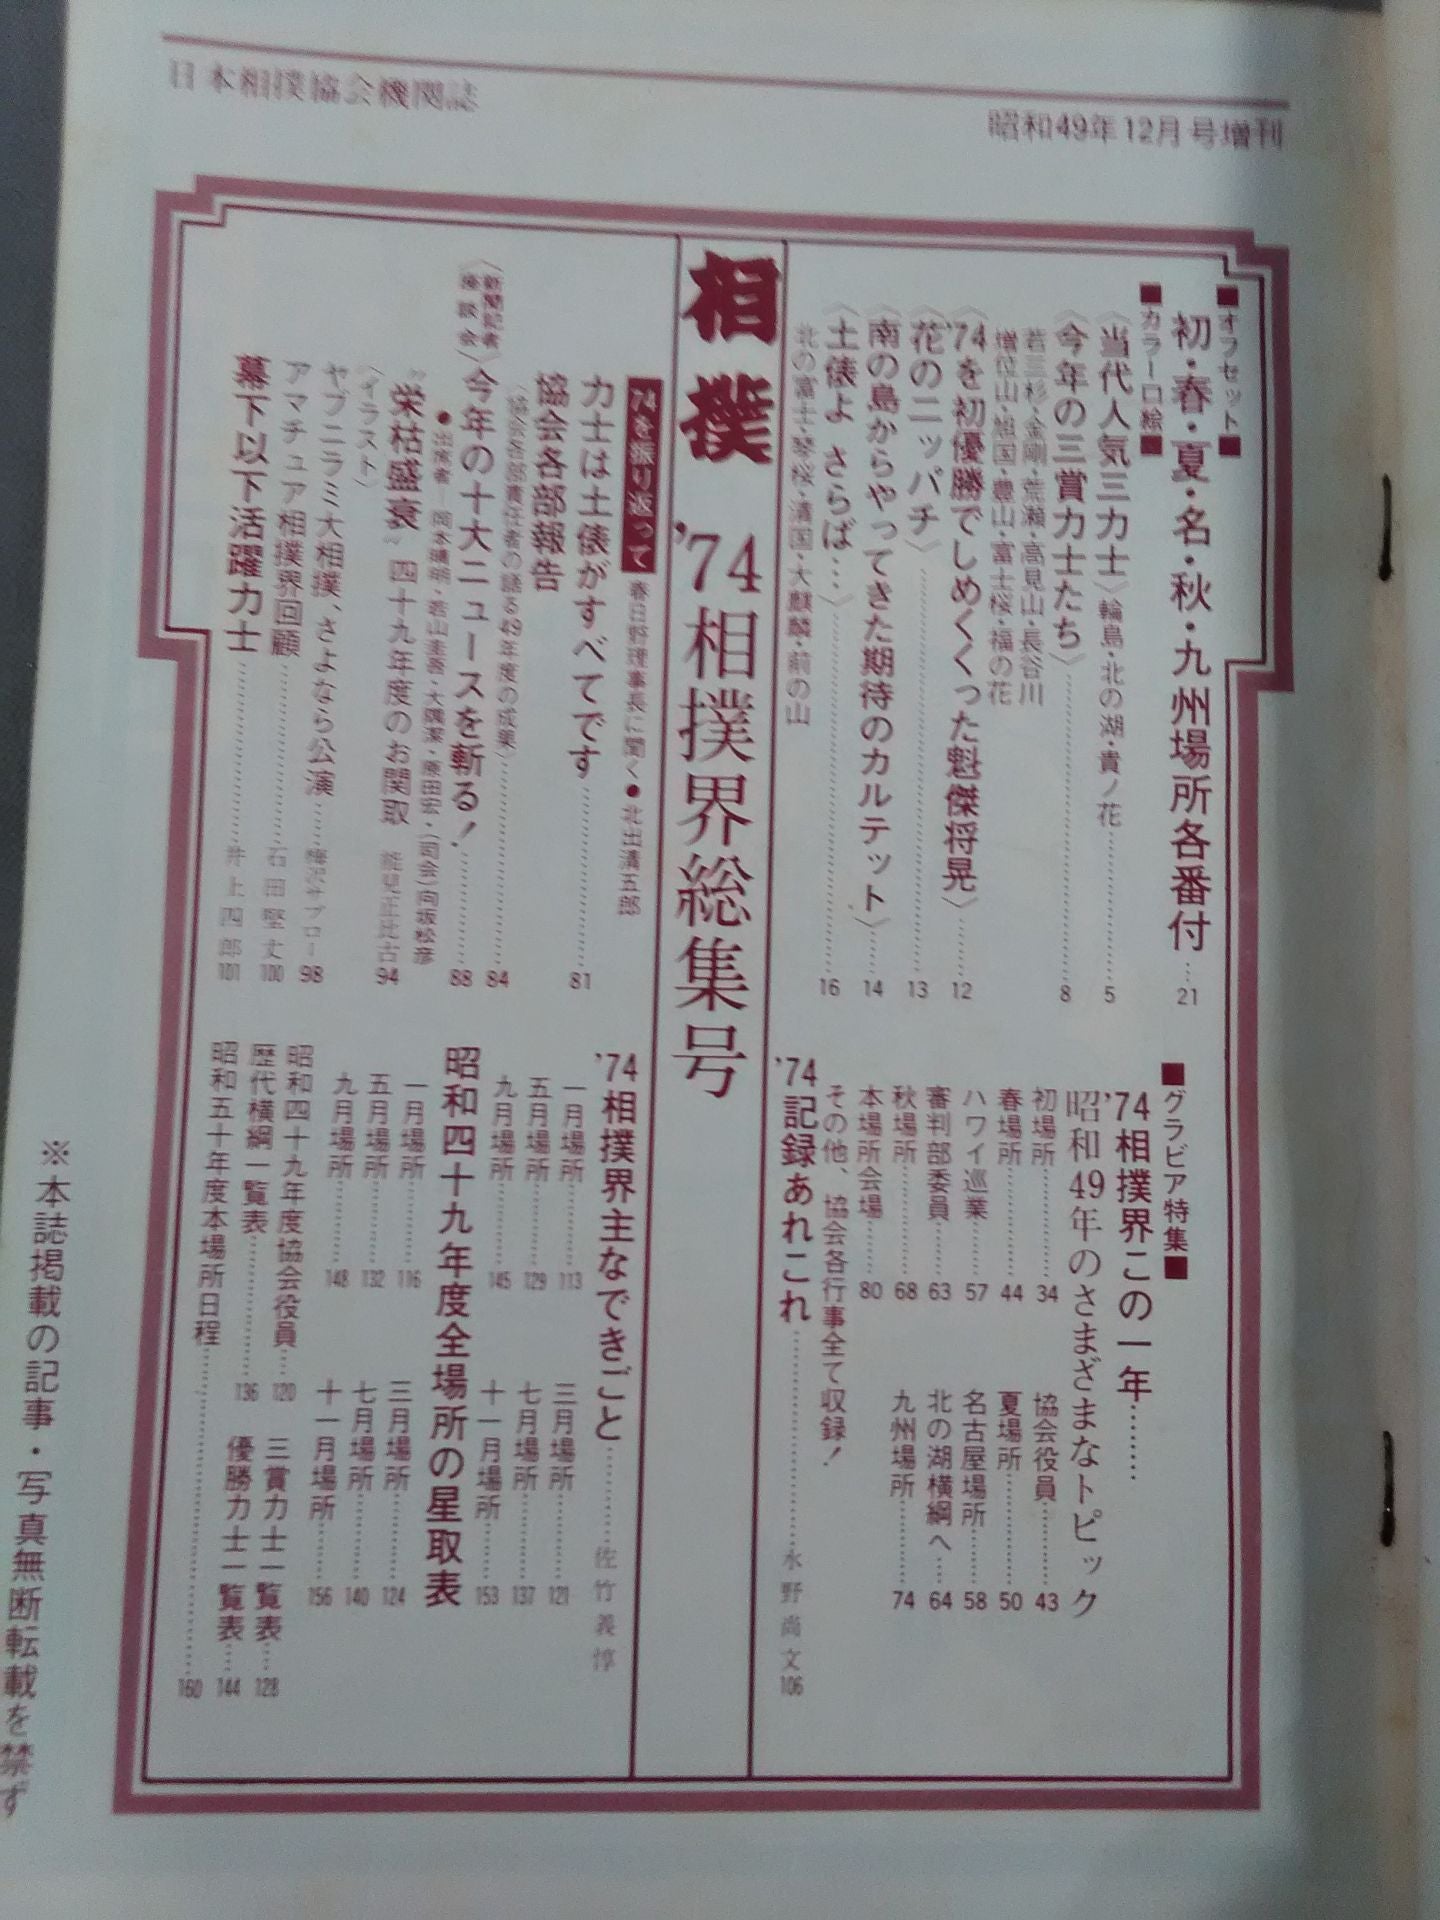 日本相撲協会機関誌
昭和49年12月号増刊
■オフセット■
初・春・夏・名・秋・九州場所各番付…21
■カラー口絵■
〈当代人気三力士〉輪島・北の湖・貴ノ花……5
〈今年の三賞力士たち〉……8
若三杉・金剛・荒瀬・高見山・長谷川
増位山・旭国・豊山・富士桜・福の花
〈'74を初優勝でしめくくった魁傑将晃〉……12
〈花のニッパチ〉……13
〈南の島からやってきた期待のカルテット〉……14
〈土俵よ さらば…〉……16
北の富士・琴桜・清国・大麒麟・前の山
■グラビア特集■
'74相撲界この一年………
昭和49年のさまざまなトピック
初場所……34
協会役員……43
春場所……44
夏場所……50
ハワイ巡業……57
名古屋場所……58
審判部委員……63
北の湖横綱へ…64
秋場所……68
九州場所……74
本場所会場……80
その他、協会各行事全て収録！
'74記録あれこれ……水野尚文106
相撲 '74相撲界総集号
'74を振り返って 春日野理事長に聞く●北出清五郎
力士は土俵がすべてです……81
協会各部報告
〈協会各部責任者の語る49年度の成果〉……84
〈新聞記者座談会〉今年の十大ニュースを斬る！……88
●出席者―岡本晴明・若山圭吾・大隅潔・原田宏・(司会)向坂松彦
"栄枯盛衰"四十九年度のお関取 能見正比古94
〈イラスト〉
ヤブニラミ大相撲、さよなら公演……梅沢サブロー98
アマチュア相撲界回顧……石田堅丈100
幕下以下活躍力士……井上四郎101
'74相撲界主なできごと……佐竹義惇
一月場所……113
三月場所……121
五月場所……129
七月場所……137
九月場所……145
十一月場所……153
昭和四十九年度全場所の星取表
一月場所……116
三月場所……124
五月場所……132
七月場所……140
九月場所……148
十一月場所……156
昭和四十九年度協会役員…120
三賞力士一覧表…128
歴代横綱一覧表……136
優勝力士一覧表…144
昭和五十年度本場所日程……160
※本誌掲載の記事・写真無断転載を禁ず